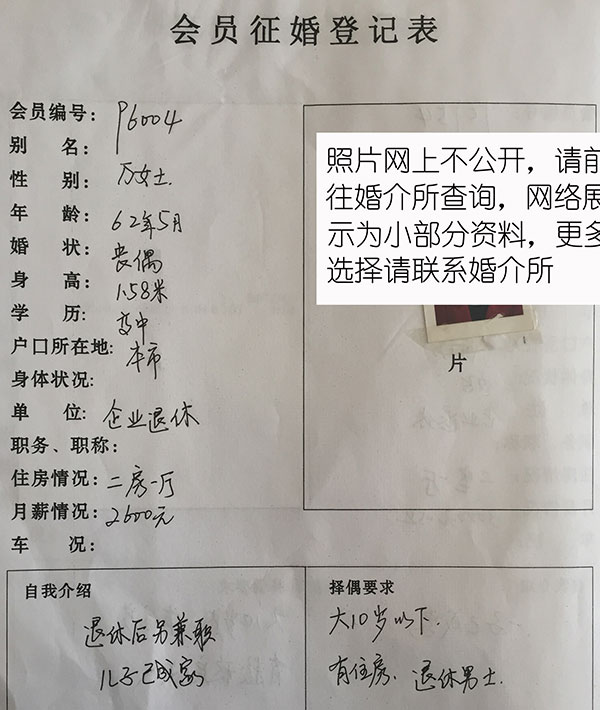 会员征婚登记表
会员编号：P6004
别　名：
性　别：万女士.
年　龄：62年5月
婚　状：丧偶
身　高：1.58米
学　历：高中
户口所在地：本市
身体状况：
单　位：企业退休
职务、职称：
住房情况：二房一厅
月薪情况：2600元
车　况：
照片网上不公开，请前
往婚介所查询，网络展
示为小部分资料，更多
选择请联系婚介所
片
自我介绍
退休后另兼职
儿子已成家
择偶要求
大10岁以下.
有住房、退休男士.